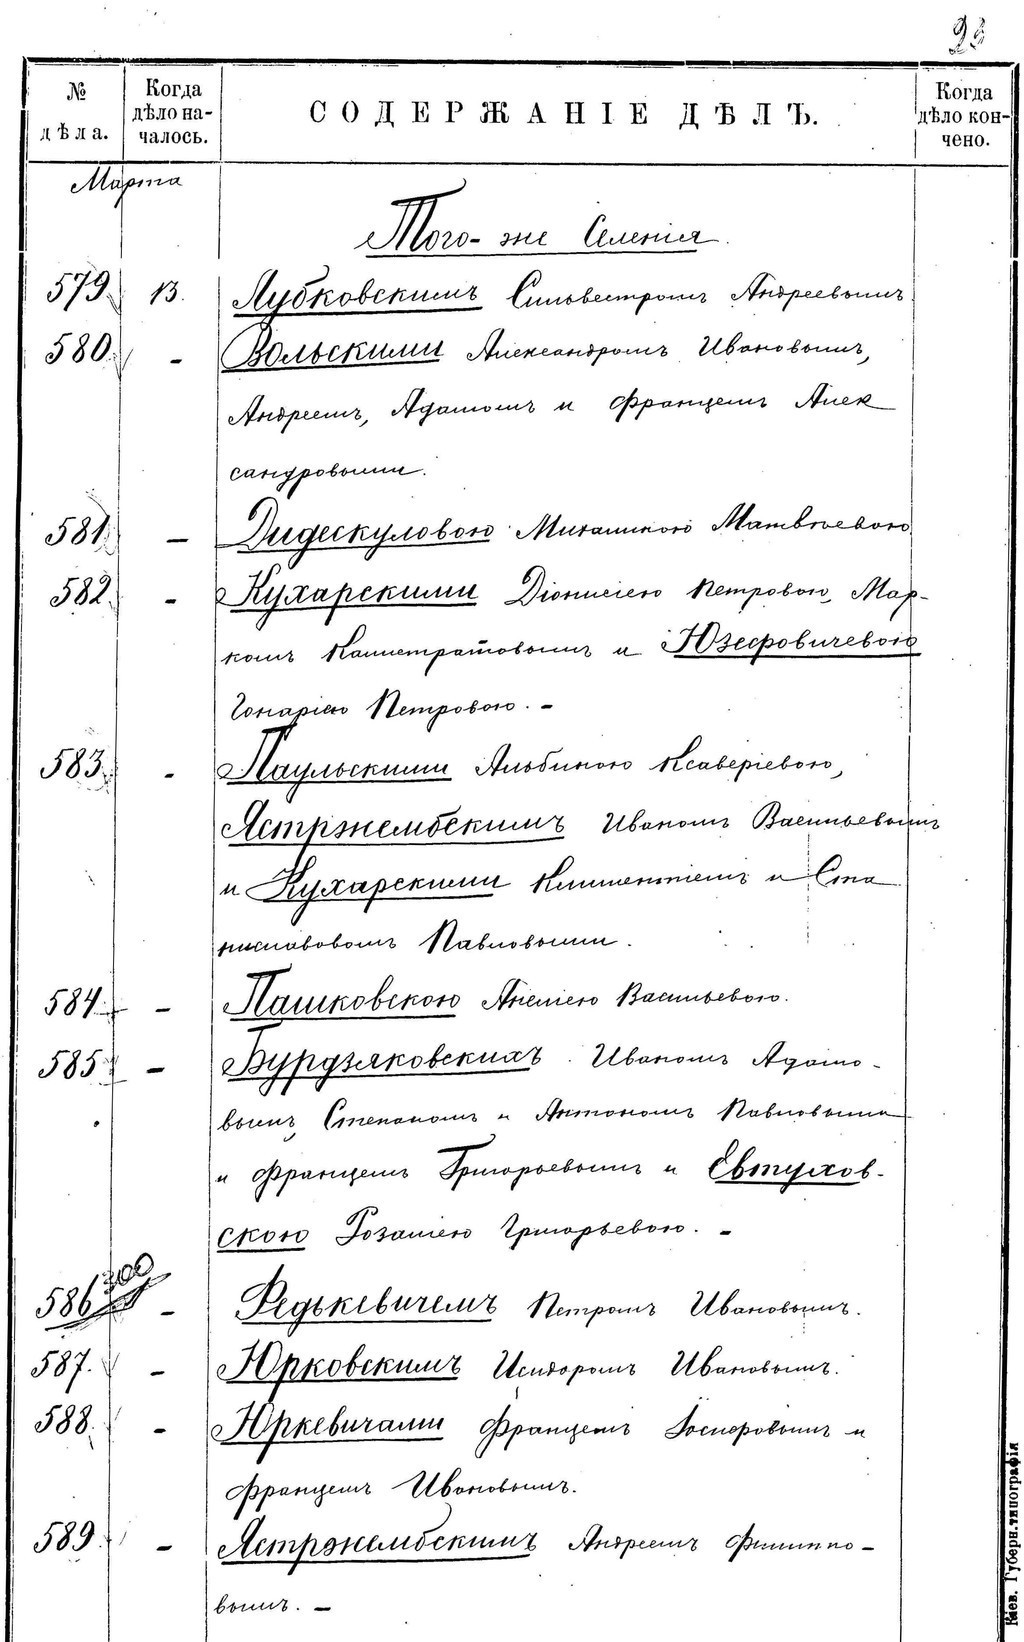 23
№ дѣла.
Когда дѣло началось.
СОДЕРЖАНІЕ ДѢЛЪ.
Когда дѣло кончено.
Марта
Того-же Селенія.
579. 13. Лубковскимъ Сильвестромъ Андреевымъ
580. - Вольскими Александромъ Ивановымъ,
Андреемъ, Адамомъ и Францемъ Алек
сандровыми.
581. - Дидескуловою Михалиною Матвѣевою
582. - Кухарскими Діонисіею Петровою, Мар-
комъ Калистратовымъ и Юзефовичевою
Гонаріею Петровою. -
583. - Паульскими Альбиною Ксаверіевою,
Ястржембскимъ Иваномъ Васильевымъ
и Кухарскими Климентіемъ и Ста
ниславовомъ Павловыми.
584. - Пашковскою Анеліею Васильевою.
585. - Бурдзяковскихъ Иваномъ Адамо-
вымъ, Степаномъ и Антономъ Павловыми
и Францемъ Григорьевымъ и Евтухов-
скою Розаліею Григорьевою. -
586 - Редькевичемъ Петромъ Ивановымъ.
587. - Юрковскимъ Исидоромъ Ивановымъ.
588. - Юркевичами Францемъ Іосифовымъ и
Францемъ Ивановымъ.
589. - Ястржембскимъ Андреемъ Филиппо-
вымъ. -
Кіев. Губерн. типографія